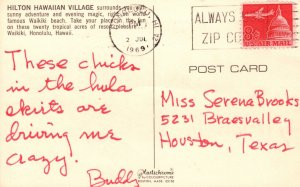 HILTON HAWAIIAN VILLAGE surrounds you with
sunny adventure and evening magic, right on world
famous Waikiki beach. Take your place in the sun
on these twenty tropical acres of resortmanship.
Waikiki, Honolulu, Hawaii.
2 JUL
1969
ALWAYS
ZIP CO
8c
U.S. AIR MAIL
POST CARD
These chicks
in the hula
skirts are
driving me
crazy.
Buddy
Miss Serena Brooks
5231 Braesvalley
Houston, Texas
Mastochrome